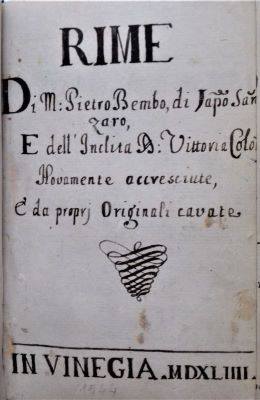 RIME
Di M: Pietro Bembo, di Japõ Sañ
zaro,
E dell'Inclita D: Vittoria Colõ
Novamente accresciute,
E da proprj Originali cavate
IN VINEGIA. MDXLIIII.
1544